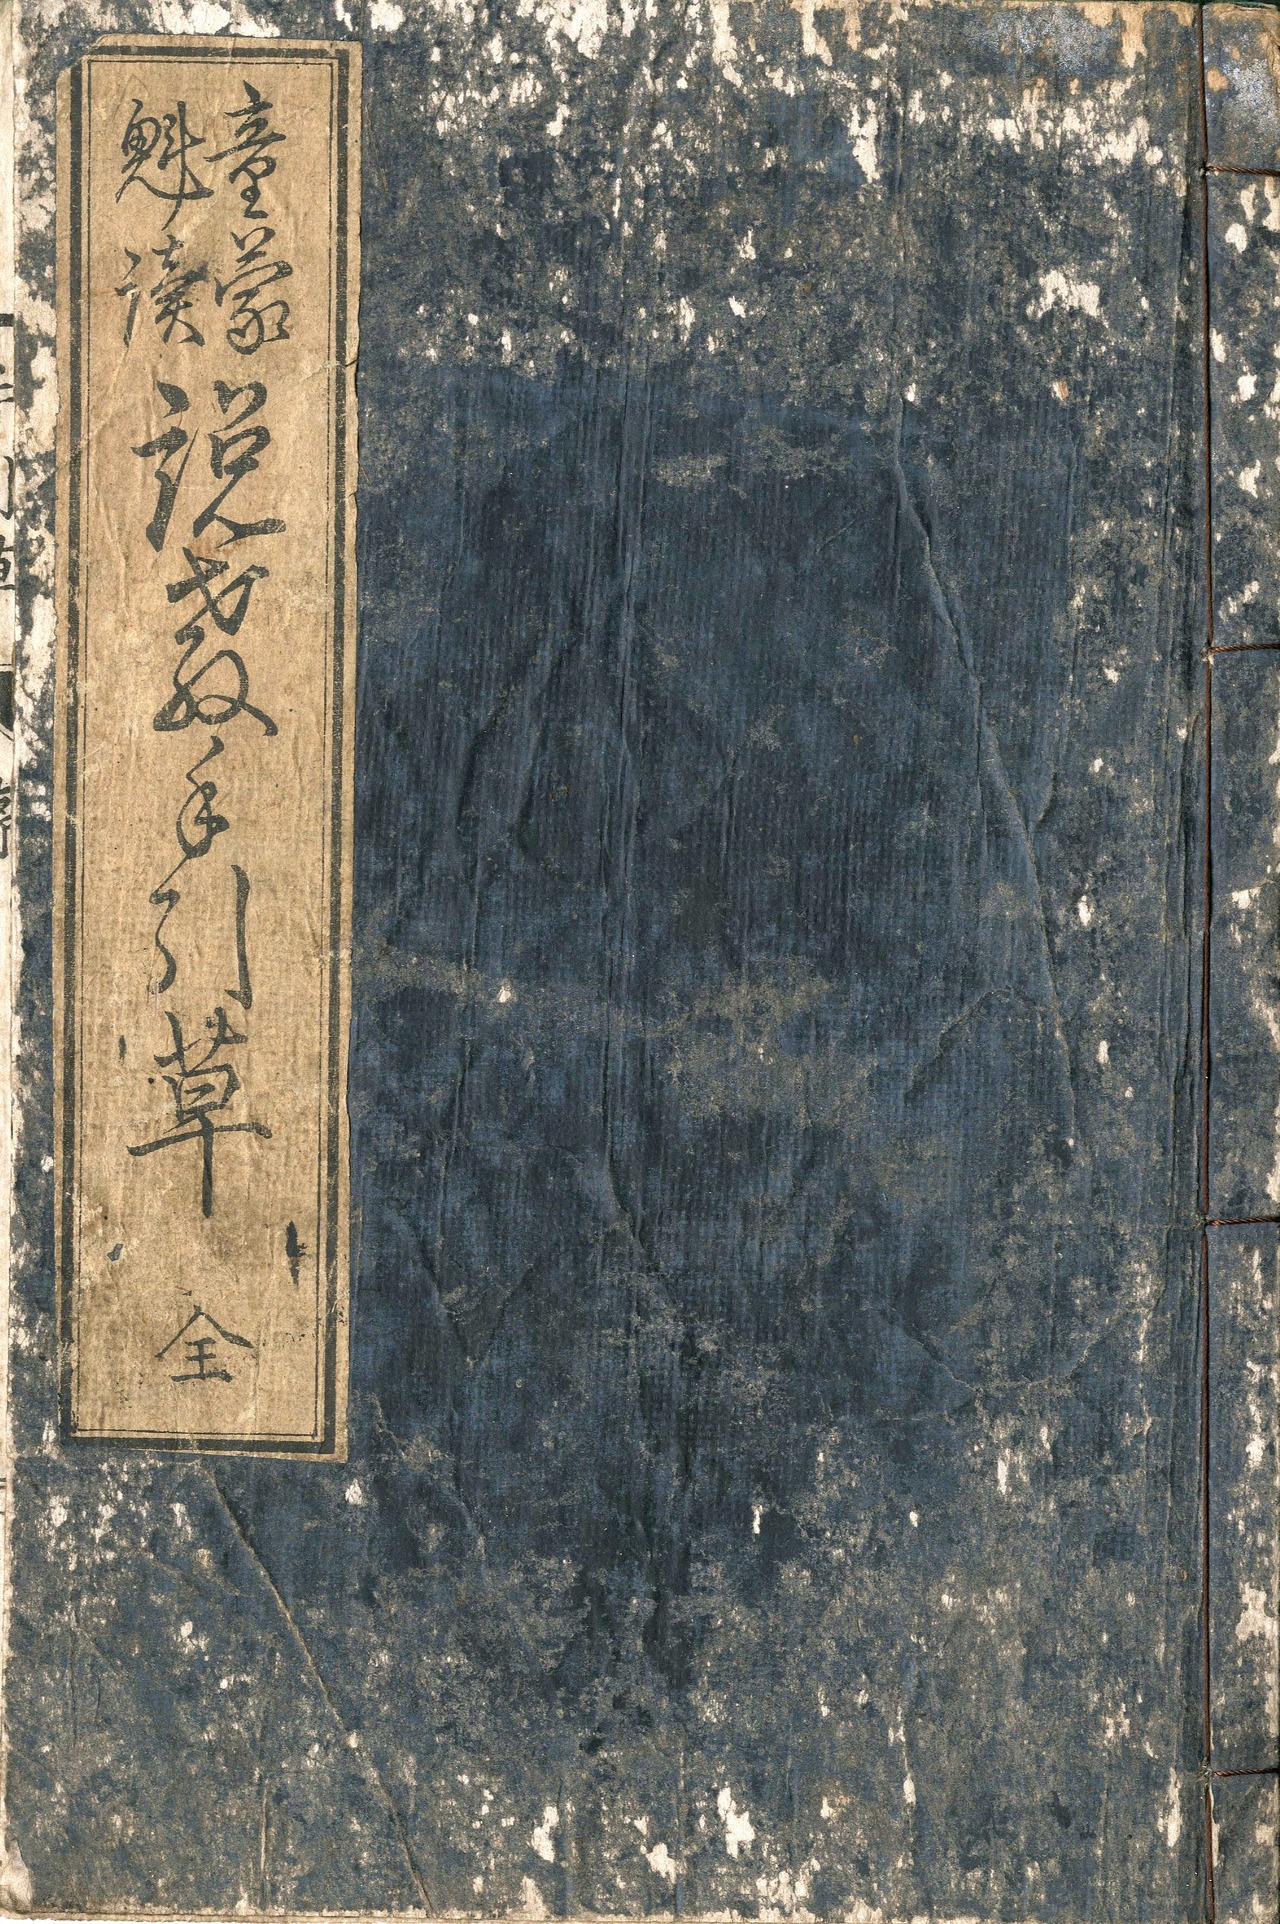 童蒙
魁讀
説教手引草
全